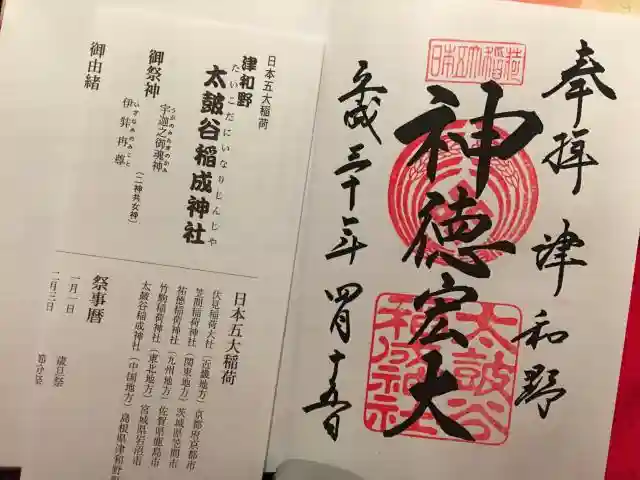 奉拝 津和野
日本五大稲荷
神徳宏大
太皷谷
稲成神社
平成三十一年四月十五日
日本五大稲荷
津和野
太皷谷稲成神社
たいこだにいなりじんじゃ
御祭神
宇迦之御魂神
うがのみたまのかみ
伊弉冉尊
いざなみのみこと
(二神共女神)
御由緒
日本五大稲荷
伏見稲荷大社(近畿地方)京都府京都市
笠間稲荷神社(関東地方)茨城県笠間市
祐徳稲荷神社(九州地方)佐賀県鹿島市
竹駒稲荷神社(東北地方)宮城県岩沼市
太皷谷稲成神社(中国地方)島根県津和野
祭事暦
一月一日 歳旦祭
二月三日 節分祭